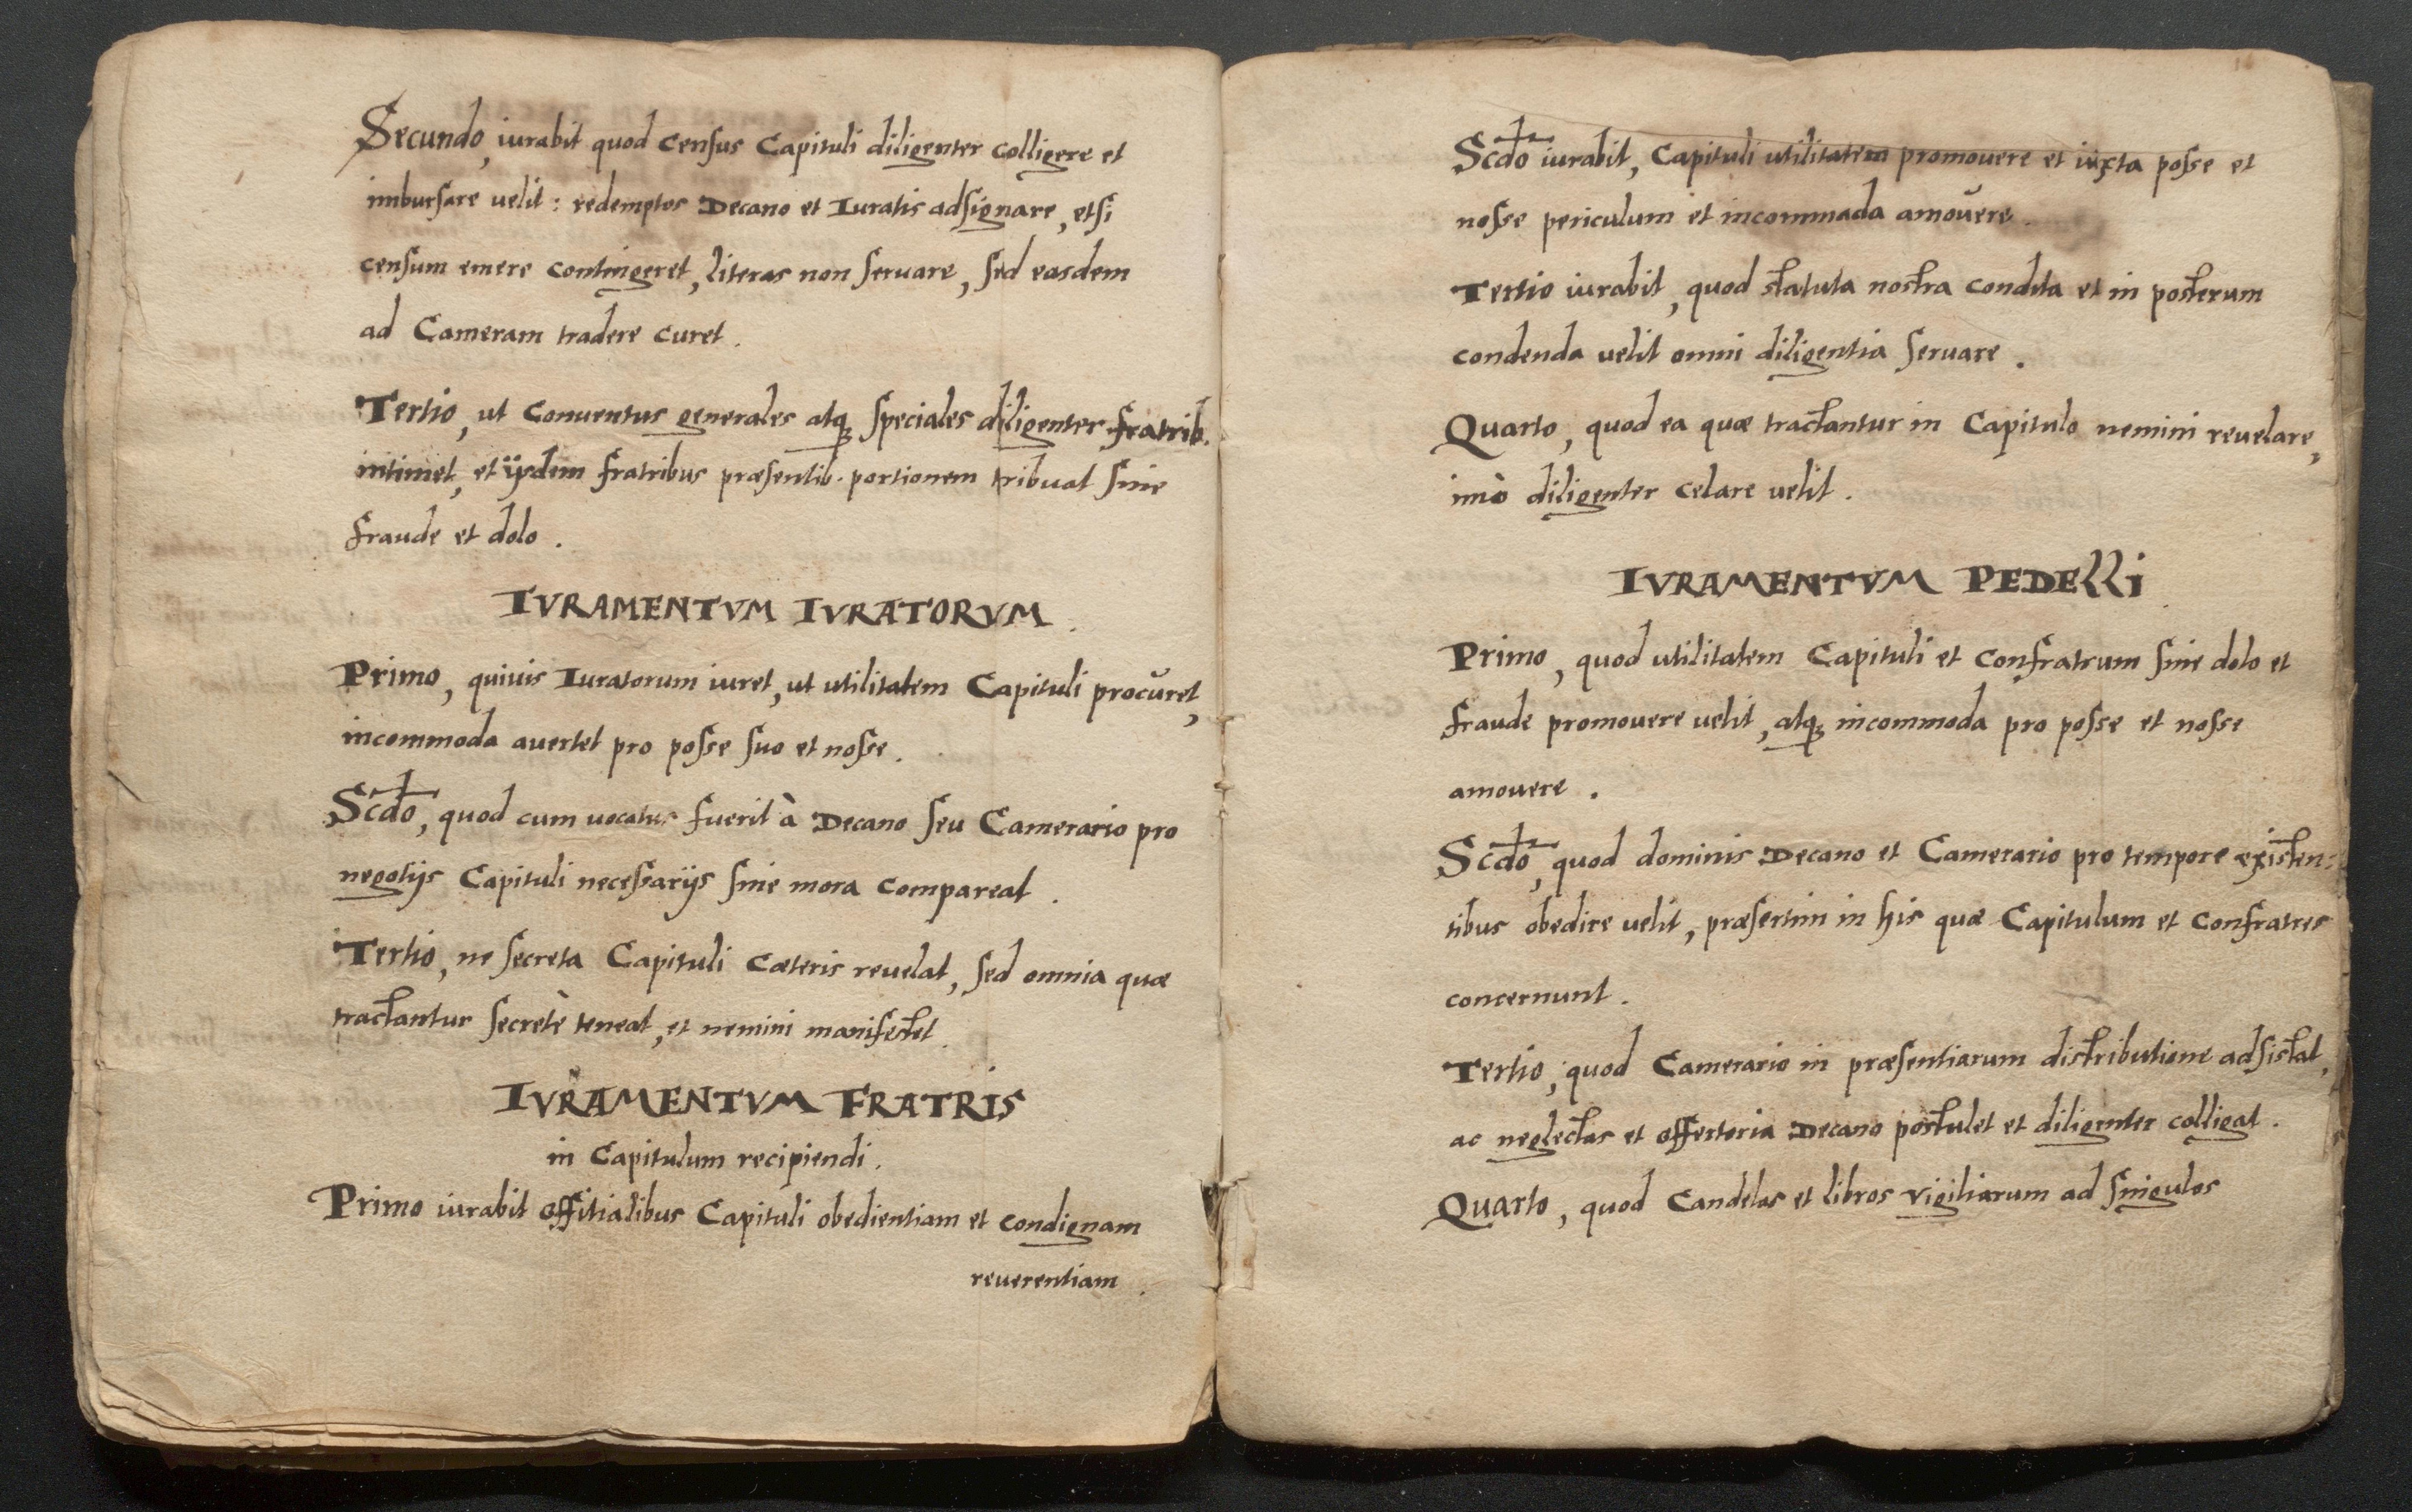 Secundo, iurabit quod census Capituli diligenter colligere et
imbursare uelit: redemptos Decano et Iuratis adsignare, etsi
censum emere contingeret, literas non seruare, sed easdem
ad Cameram tradere curet.
Tertio, ut Conuentus generales atq; speciales diligenter fratrib.
intimet, et ijsdem fratribus præsentib. portionem tribuat sine
fraude et dolo.
IVRAMENTVM IVRATORVM.
Primo, quiuis Iuratorum iuret, ut utilitatem Capituli procuret,
incommoda auertet pro posse suo et nosse.
Scdo, quod cum uocatus fuerit à Decano seu Camerario pro
negotijs Capituli necessarijs sine mora compareat.
Tertio, ne secreta Capituli cæteris reuelat, sed omnia quæ
tractantur secretè teneat, et nemini manifestet.
IVRAMENTVM FRATRIS
in Capitulum recipiendi.
Primo iurabit offitialibus Capituli obedientiam et condignam
reuerentiam.
Scdo iurabit, Capituli utilitatem promouere et iuxta posse et
nosse periculum et incommada amouere.
Tertio iurabit, quod statuta nostra condita et in posterum
condenda uelit omni diligentia seruare.
Quarto, quod ea quæ tractantur in Capitulo nemini reuelare,
imò diligenter celare uelit.
IVRAMENTVM PEDElli
Primo, quod utilitatem Capituli et confratrum sine dolo et
fraude promouere uelit, atq; incommoda pro posse et nosse
amouere.
Scdo, quod dominis Decano et Camerario pro tempore existen:
tibus obedire uelit, præsertim in his quæ Capitulum et confratres
concernunt.
Tertio, quod Camerario in præsentiarum distributione adsistat,
ac neglectas et offertoria Decano postulet et diligenter colligat.
Quarto, quod Candelas et libros vigiliarum ad singulos